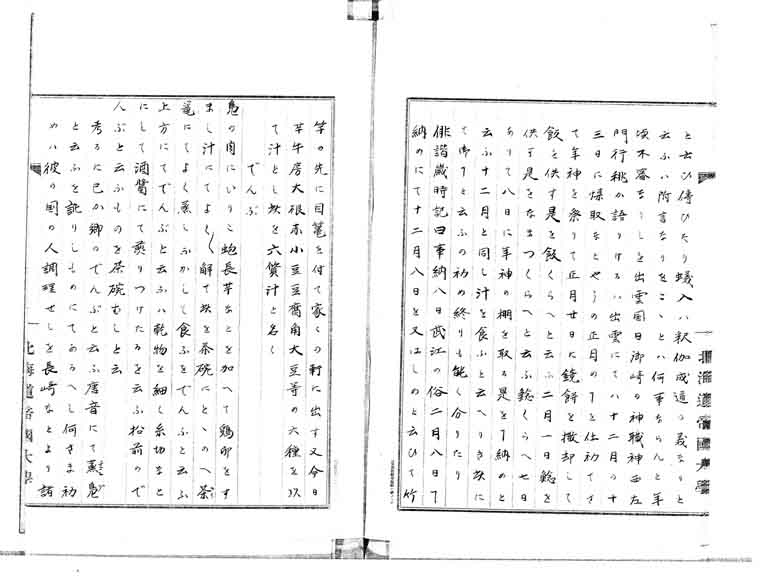 と云ひ傳ひたり蟻入ハ釈伽成道の義なりと
云ふハ附言なりをことハ何事ならんと年
頃不審なりしを出雲国日御崎の神職神西左
門行祧か語りけるハ出雲にてハ十二月の十
三日に煤取なとやうの正月のヿを仕初てさ
て年神を祭りて正月廿日に鏡餅を撤却して
飯を供す是を飯くらへと云ふ二月一日鯰を
供す是をなまつくらへと云ふ鯰くらへ七日
ありて八日に年神の棚を取る是をヿ納めと
云ふ十二月と同し汁を食ふと云へりき玆に
て御ヿと云ふの初め終りも能く分りたり
俳諧歳時記曰事納八日武江の俗二月八日ヿ
納めにて十二月八日を又はしめと云ひて竹
竿の先に目篭を付て家〱の軒に出す又今日
芋牛房大根赤小豆豆腐角大豆等の六種を以
て汁とし玆を六質汁と名く
でんぶ
鳧の肉にいりこ鮑長芋なとを加へて鶏卵をす
まし汁にてよく〱解て玆を茶碗にとゝのへ茶
篭にてよく蒸しふかして食ふをでんふと云ふ
上方にてでんぶと云ふハ乾物を細く糸切なと
にして酒醤にて煎りつけたるを云ふ松前ので
人ぶと云ふものを茶碗むしと云
考るに已か郷のでんぶと云ふ唐音にて鮏鳧
と云ふを訛りしものにてあるへし何さま初
めハ彼の国の人調理せしを長崎なとより諸
北海道帝國大學
北海道帝國大學